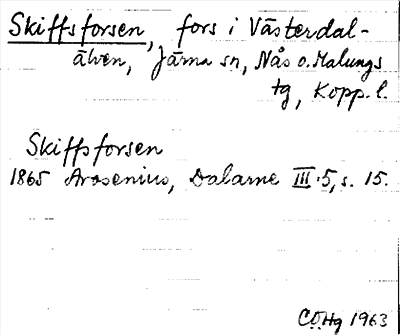 Skiffsforsen, fors i Västerdal-
älven, Järna sn, Nås o. Malungs
tg, Kopp. l.
Skiffsforsen
1865 Arosenius, Dalarne III:5, s. 15.
CÖHg 1963